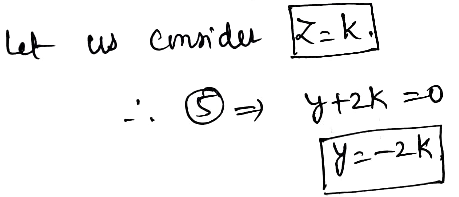 Let us consider z=k.
∴ ⑤ ⇒ y+2k =0
y=-2k